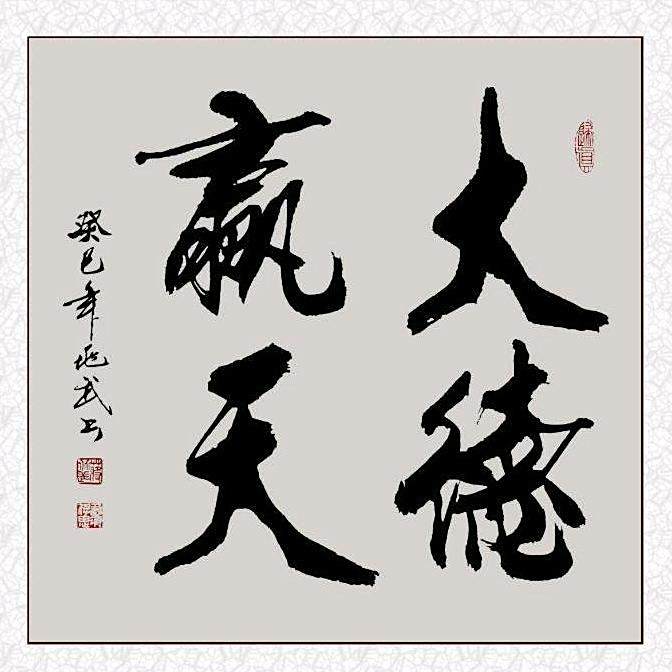 大德
赢天
癸巳年
武